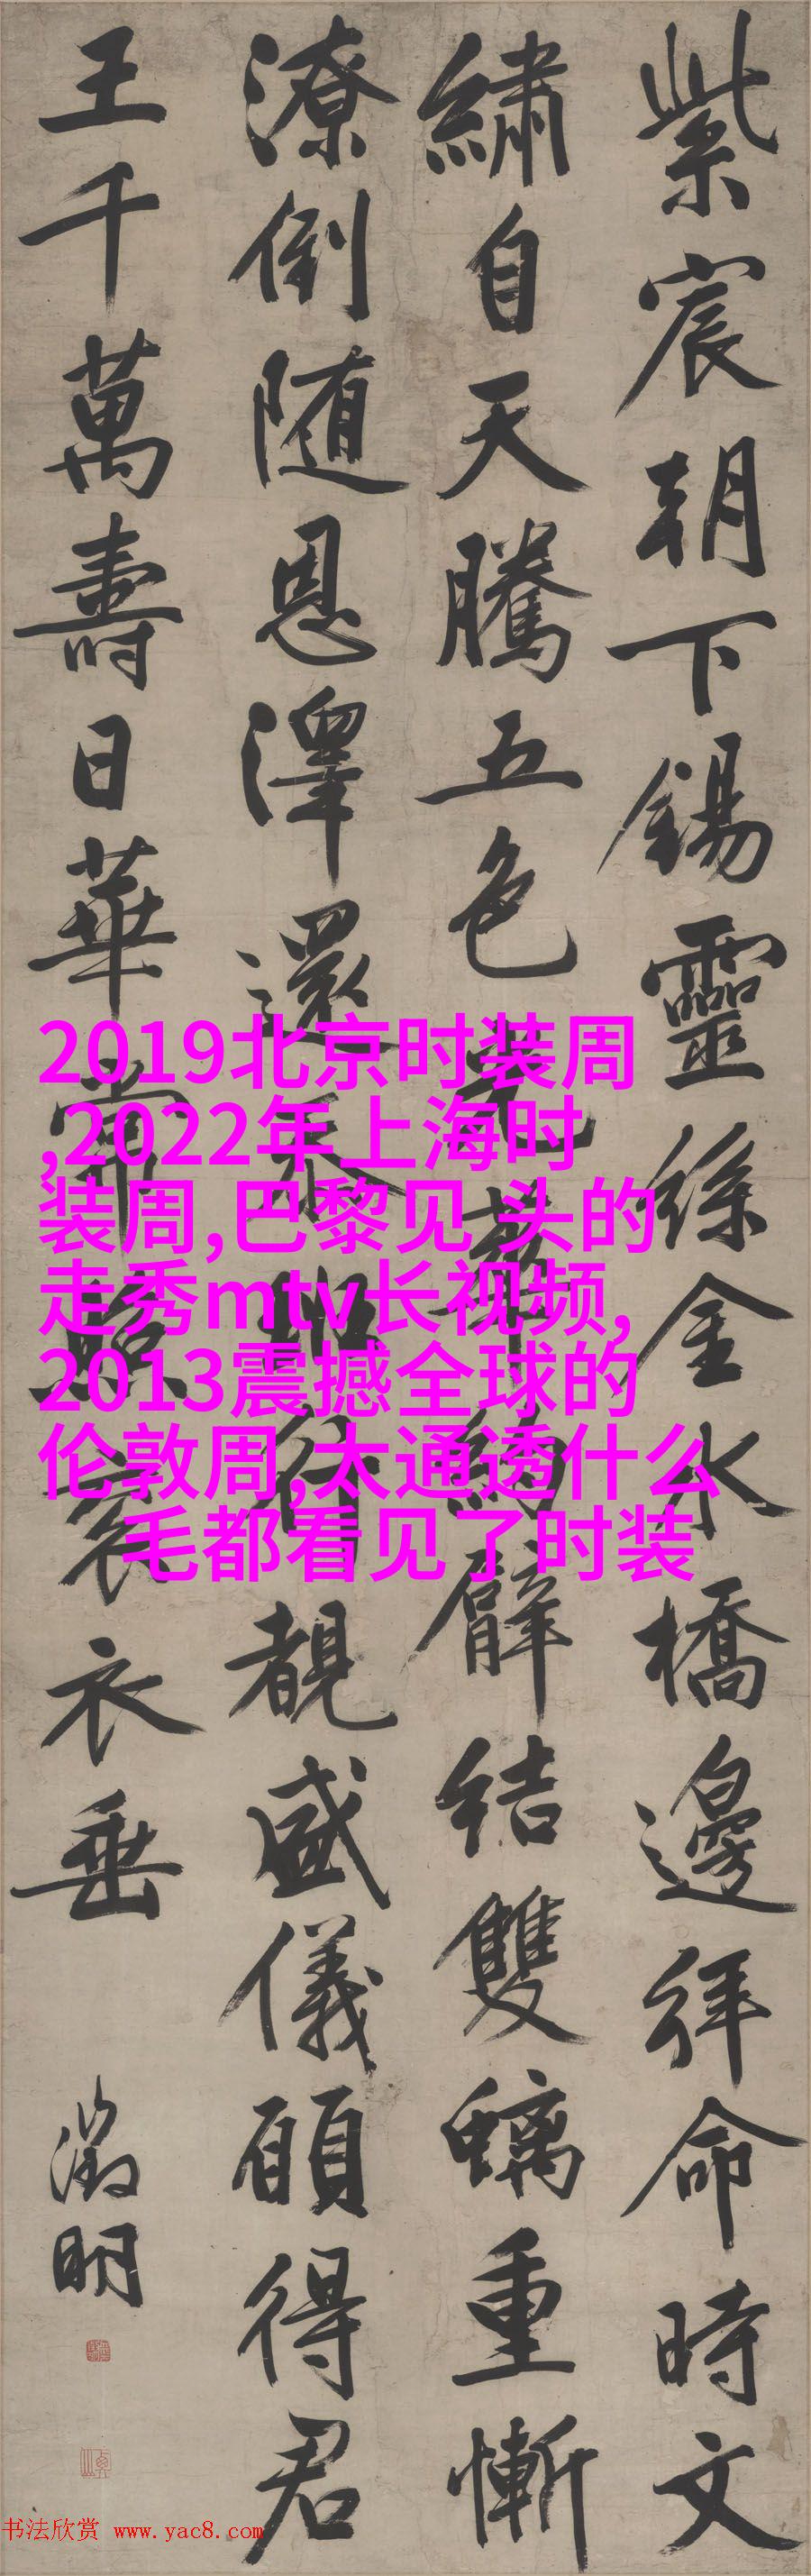 紫宸朝下錫靈絲金水橋邊拜命時文
繡自天騰五色光華約臂結雙螭重慚
潦倒随恩澤還忝班行覩盛儀願得君
王千萬壽日華常照袞衣垂
徵明
2019北京时装周
,2022年上海时
装周,巴黎见 头的
走秀mtv长视频,
2013震撼全球的
伦敦周,太通透什么
毛都看见了时装
书法欣赏 www.yac8.com